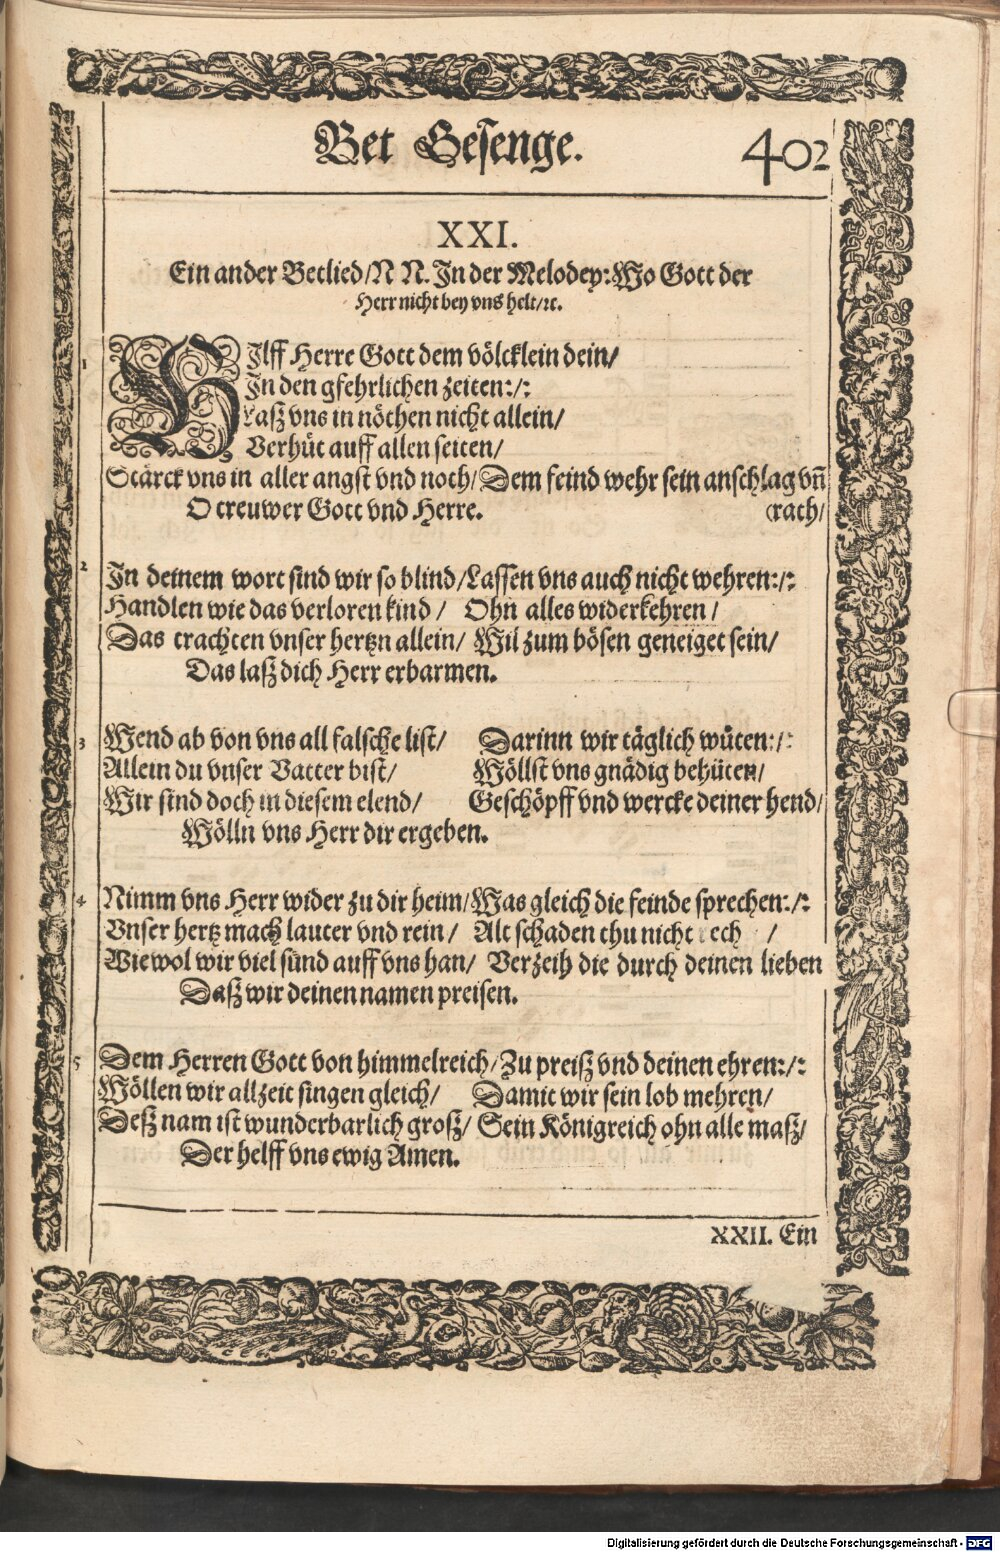 Bet Gesenge. 402
XXI.
Ein ander Betlied/ N N. In der Melodey: Wo Gott der
Herr nicht bey vns helt/ ꝛc.
1 HIlff Herre Gott dem völcklein dein/
In den gfehrlichen zeiten:/:
Laß vns in nöthen nicht allein/
Verhüt auff allen seiten/
Stärck vns in aller angst vnd noth/ Dem feind wehr sein anschlag vñ
O treuwer Gott vnd Herre. (rath/
2 In deinem wort sind wir so blind/ Lassen vns auch nicht wehren:/:
Handlen wie das verloren kind/ Ohn alles widerkehren/
Das trachten vnser hertzn allein/ Wil zum bösen geneiget sein/
Das laß dich Herr erbarmen.
3 Wend ab von vns all falsche list/ Darinn wir täglich wüten:/:
Allein du vnser Vatter bist/ Wöllst vns gnädig behüten/
Wir sind doch in diesem elend/ Geschöpff vnd wercke deiner hend/
Wölln vns Herr dir ergeben.
4 Nimm vns Herr wider zu dir heim/ Was gleich die feinde sprechen:/:
Vnser hertz mach lauter vnd rein/ Alt schaden thu nicht /
Wiewol wir viel sünd auff vns han/ Verzeih die durch deinen lieben
Daß wir deinen namen preisen.
5 Dem Herren Gott von himmelreich/ Zu preiß vnd deinen ehren:/:
Wöllen wir allzeit singen gleich/ Damit wir sein lob mehren/
Deß nam ist wunderbarlich groß/ Sein Königreich ohn alle maß/
Der helff vns ewig Amen.
XXII. Ein
Digitalisierung gefördert durch die Deutsche Forschungsgemeinschaft - DFG